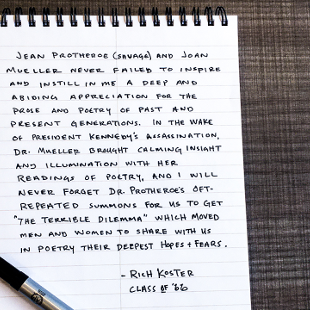 JEAN PROTHEROE (SAVAGE) AND JOAN
MUELLER NEVER FAILED TO INSPIRE
AND INSTILL IN ME A DEEP AND
ABIDING APPRECIATION FOR THE
PROSE AND POETRY OF PAST AND
PRESENT GENERATIONS. IN THE WAKE
OF PRESIDENT KENNEDY'S ASSASSINATION,
DR. MUELLER BROUGHT CALMING INSIGHT
AND ILLUMINATION WITH HER
READINGS OF POETRY, AND I WILL
NEVER FORGET DR. PROTHEROE'S OFT-
REPEATED SUMMONS FOR US TO GET
"THE TERRIBLE DILEMMA" WHICH MOVED
MEN AND WOMEN TO SHARE WITH US
IN POETRY THEIR DEEPEST HOPES + FEARS.
- RICH KOSTER
CLASS OF '66